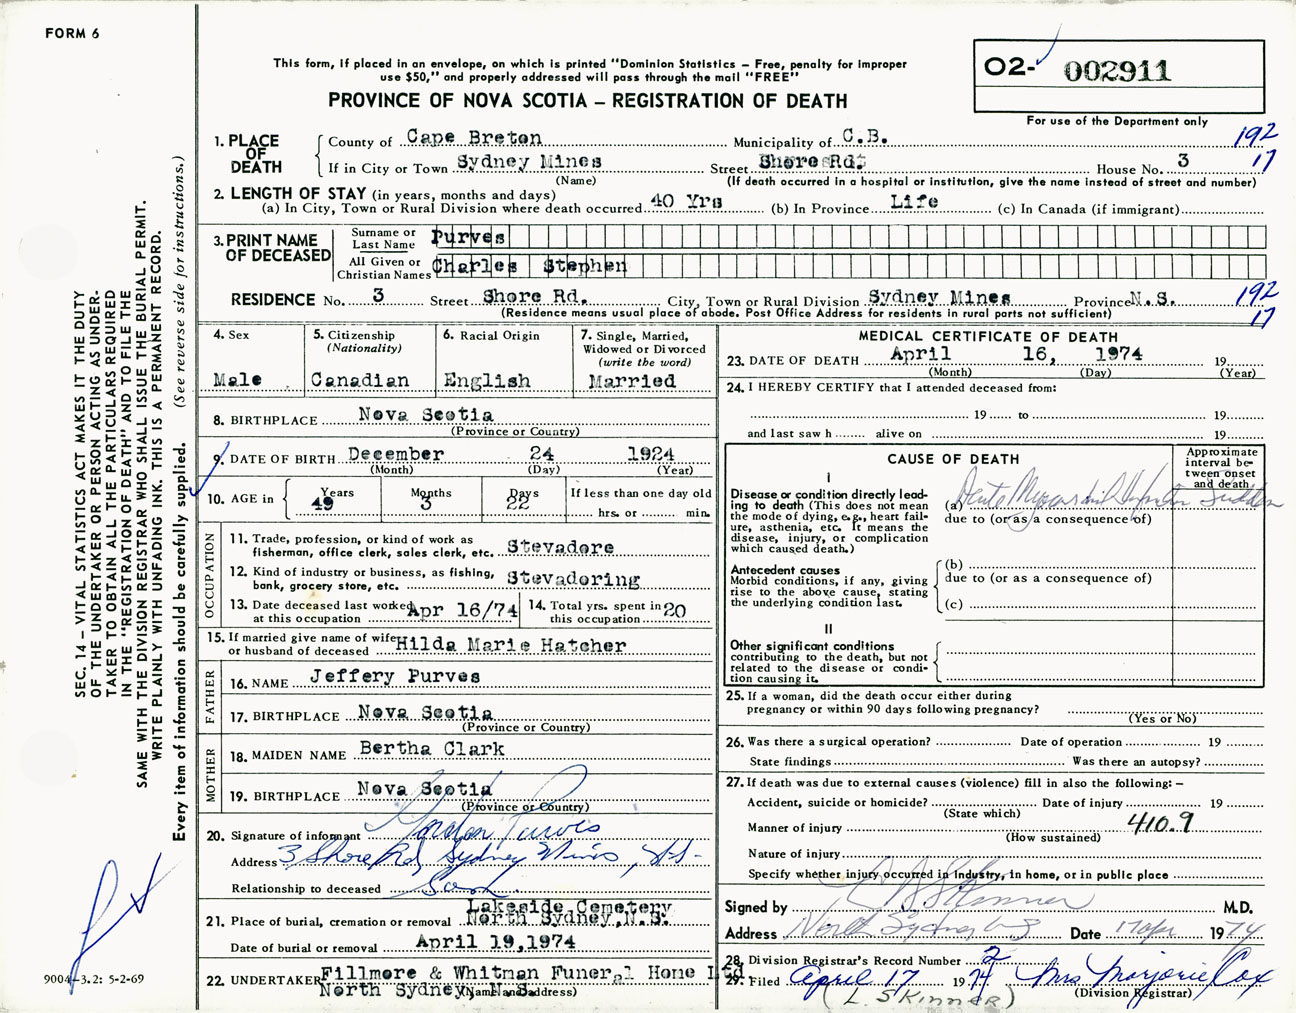 FORM 6
This form, if placed in an envelope, on which is printed "Dominion Statistics – Free, penalty for improper
use $50," and properly addressed will pass through the mail "FREE"
PROVINCE OF NOVA SCOTIA – REGISTRATION OF DEATH
O2- 002911
For use of the Department only
1. PLACE OF DEATH
County of Cape Breton Municipality of C.B. 192
If in City or Town Sydney Mines Street Shore Rd. House No. 3 17
(Name) (If death occurred in a hospital or institution, give the name instead of street and number)
2. LENGTH OF STAY (in years, months and days)
(a) In City, Town or Rural Division where death occurred 40 Yrs (b) In Province Life (c) In Canada (if immigrant)
3. PRINT NAME OF DECEASED
Surname or Last Name Purves
All Given or Christian Names Charles Stephen
RESIDENCE No. 3 Street Shore Rd. City, Town or Rural Division Sydney Mines Province N.S. 192
(Residence means usual place of abode. Post Office Address for residents in rural parts not sufficient) 17
4. Sex
Male
5. Citizenship
(Nationality)
Canadian
6. Racial Origin
English
7. Single, Married,
Widowed or Divorced
(write the word)
Married
8. BIRTHPLACE Nova Scotia
(Province or Country)
9. DATE OF BIRTH December 24 1924
(Month) (Day) (Year)
10. AGE in
Years Months Days If less than one day old
49 3 22 hrs. or min.
OCCUPATION
11. Trade, profession, or kind of work as
fisherman, office clerk, sales clerk, etc. Stevadore
12. Kind of industry or business, as fishing,
bank, grocery store, etc. Stevadoring
13. Date deceased last worked
at this occupation Apr 16/74
14. Total yrs. spent in
this occupation 20
15. If married give name of wife
or husband of deceased Hilda Marie Hatcher
FATHER
16. NAME Jeffery Purves
17. BIRTHPLACE Nova Scotia
(Province or Country)
MOTHER
18. MAIDEN NAME Bertha Clark
19. BIRTHPLACE Nova Scotia
(Province or Country)
20. Signature of informant Gordon Purves
Address 3 Shore Rd, Sydney Mines, NS-
Relationship to deceased Son
21. Place of burial, cremation or removal Lakeside Cemetery
North Sydney, N.S.
Date of burial or removal April 19, 1974
22. UNDERTAKER Fillmore & Whitman Funeral Home Ltd.
North Sydney, N.S.
(Name and address)
MEDICAL CERTIFICATE OF DEATH
23. DATE OF DEATH April 16, 1974 19
(Month) (Day) (Year)
24. I HEREBY CERTIFY that I attended deceased from:
19 to 19
and last saw h alive on 19
CAUSE OF DEATH
Approximate
interval be-
tween onset
and death
I
Disease or condition directly lead-
ing to death (This does not mean
the mode of dying, e.g., heart fail-
ure, asthenia, etc. It means the
disease, injury, or complication
which caused death.)
(a) Acute Myocardial Infarction Sudden
due to (or as a consequence of)
Antecedent causes
Morbid conditions, if any, giving
rise to the above cause, stating
the underlying condition last.
(b)
due to (or as a consequence of)
(c)
II
Other significant conditions
contributing to the death, but not
related to the disease or condi-
tion causing it.
25. If a woman, did the death occur either during
pregnancy or within 90 days following pregnancy?
(Yes or No)
26. Was there a surgical operation? Date of operation 19
State findings Was there an autopsy?
27. If death was due to external causes (violence) fill in also the following: –
Accident, suicide or homicide? Date of injury 19
(State which)
Manner of injury 410.9
(How sustained)
Nature of injury
Specify whether injury occurred in industry, in home, or in public place
Signed by L Skinner M.D.
Address North Sydney NS Date 17 Apr 1974
28. Division Registrar's Record Number 2
29. Filed April 17 1974 Mrs Marjorie Cox
(L. SKINNER) (Division Registrar)
SEC. 14 – VITAL STATISTICS ACT MAKES IT THE DUTY
OF THE UNDERTAKER OR PERSON ACTING AS UNDER-
TAKER TO OBTAIN ALL THE PARTICULARS REQUIRED
IN THE "REGISTRATION OF DEATH" AND TO FILE THE
SAME WITH THE DIVISION REGISTRAR WHO SHALL ISSUE THE BURIAL PERMIT.
WRITE PLAINLY WITH UNFADING INK. THIS IS A PERMANENT RECORD.
Every item of information should be carefully supplied. (See reverse side for instructions.)
9004-3.2: 5-2-69